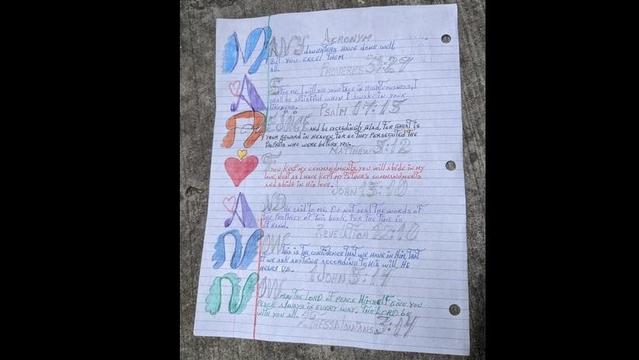 ACRONYM
MANY DAUGHTERS HAVE DONE WELL
BUT YOU EXCEL THEM
ALL. PROVERBS 31:29
AS
FOR ME I WILL SEE YOUR FACE IN RIGHTEOUSNESS, I
SHALL BE SATISFIED WHEN I AWAKE IN YOUR
LIKENESS. PSALM 17:15
REJOICE AND BE EXCEEDINGLY GLAD, FOR GREAT IS
YOUR REWARD IN HEAVEN, FOR SO THEY PERSECUTED THE
PROPHETS WHO WERE BEFORE YOU.
MATTHEW 5:12
IF
YOU KEEP MY COMMANDMENTS, YOU WILL ABIDE IN MY
LOVE, JUST AS I HAVE KEPT MY FATHER'S COMMANDMENTS
AND ABIDE IN HIS LOVE.
JOHN 15:10
AND
HE SAID TO ME, DO NOT SEAL THE WORDS OF
THE PROPHECY OF THIS BOOK, FOR THE TIME IS
AT HAND.
REVELATION 22:10
NOW
THIS IS THE CONFIDENCE THAT WE HAVE IN HIM, THAT
IF WE ASK ANYTHING ACCORDING TO HIS WILL, HE
HEARS US.
1 JOHN 5:14
NOW
MAY THE LORD OF PEACE HIMSELF GIVE YOU
PEACE ALWAYS IN EVERY WAY. THE LORD BE
WITH YOU ALL.
THESSALONIANS